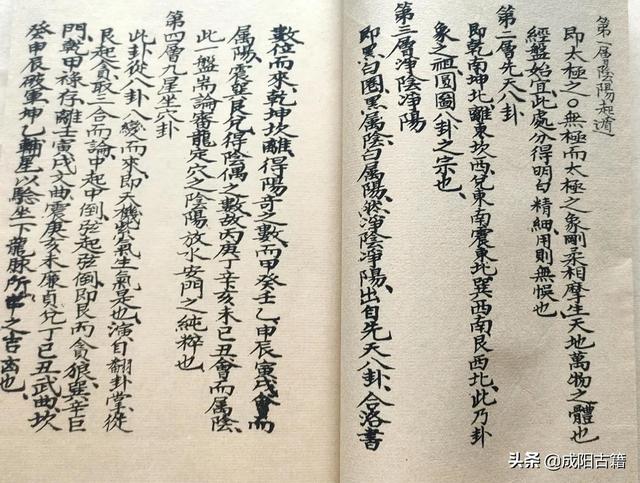 第一層陰陽起道
即太極之〇無極而太極之象剛柔相摩生天地萬物之體也
經盤始宜此處分得明白精細用則無悞也
第二層先天八卦
即乾南坤北離東坎西兌東南震東北巽西南艮西北此乃卦
象之祖圓圖八卦之宗也
第三層淨陰淨陽
即黑白圈黑属陰白属陽然淨陰淨陽出自先天八卦合落書
數位而來乾坤坎離得陽奇之數而甲癸壬乙申辰寅戌會而
属陽震巽艮兌得陰偶之數故丙庚丁辛亥未巳丑會而属陰
此一盤耑論審龍定穴之陰陽放水安門之純粹也
第四層九星坐穴卦
此卦從八卦八變而來即天機紫氣生氣是也演自翻卦掌從
艮起貪取三合而論中起中倒弦起弦倒即艮丙貪狼巽辛巨
門乾甲祿存離壬寅戌文曲震庚亥未廉貞兌丁巳丑武曲坎
癸申辰破軍坤乙輔星以驗坐下龍脉所之吉凶也
头条 @成阳古籍